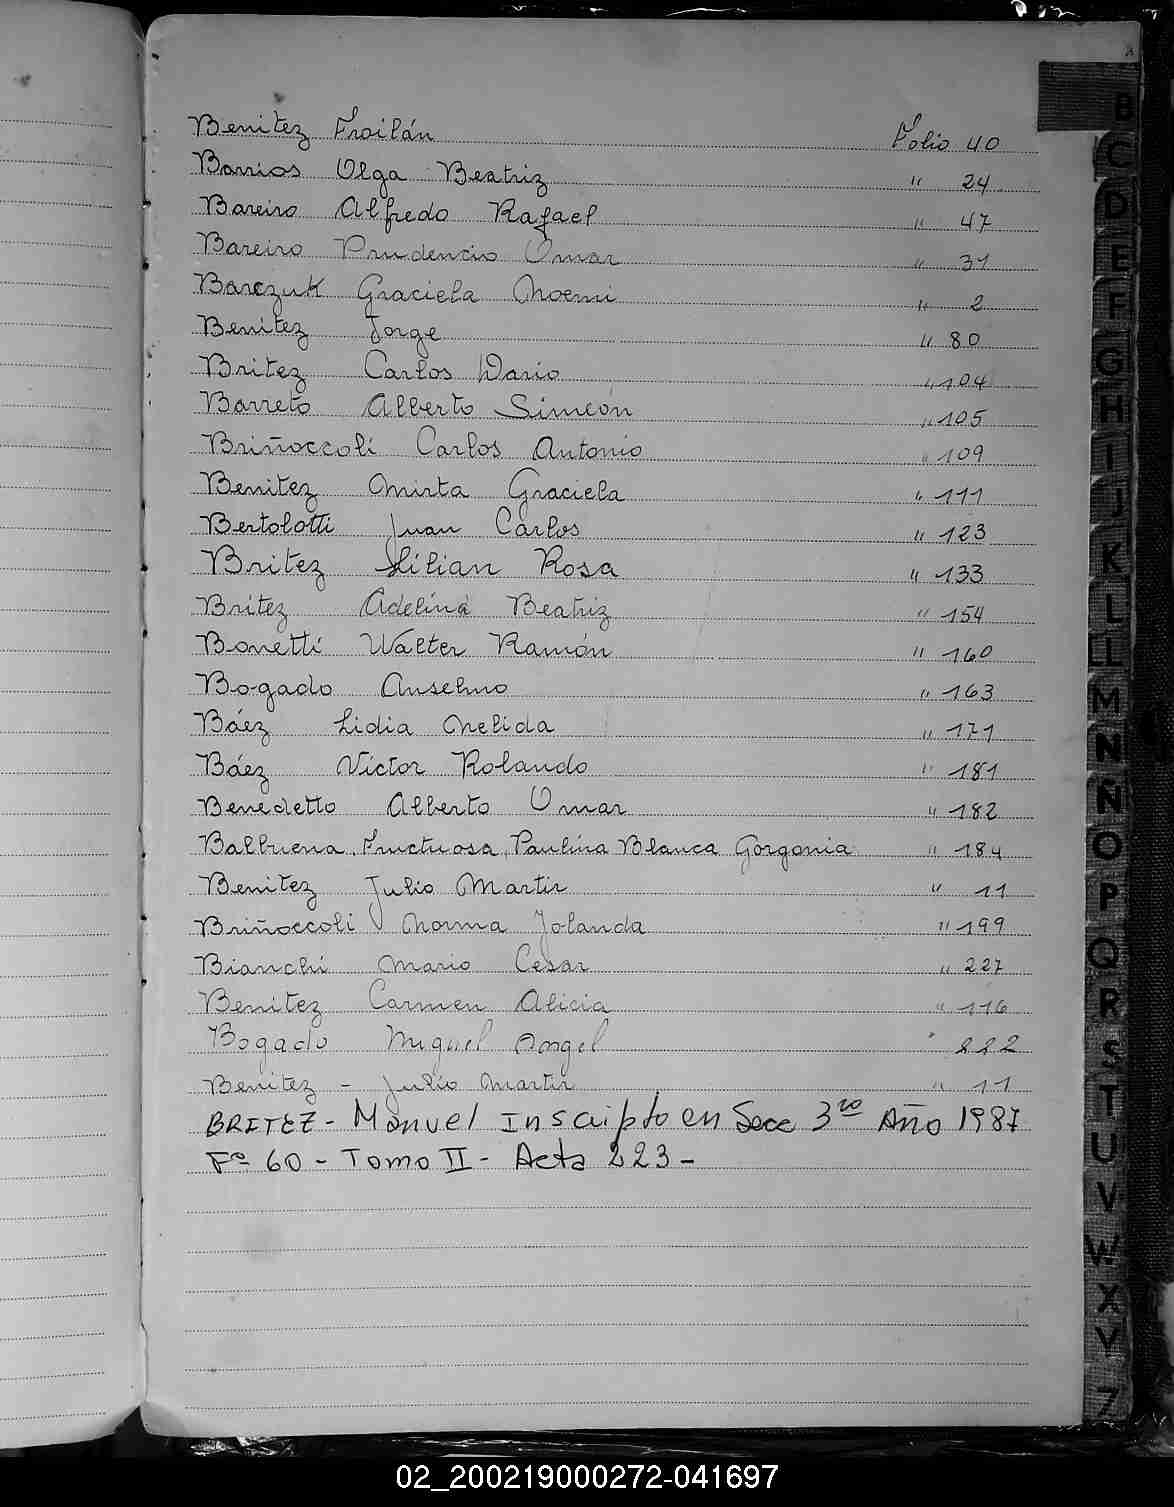 Benitez Froilán Folio 40
Barrios Olga Beatriz " 24
Bareiro Alfredo Rafael " 47
Bareiro Prudencio Omar " 31
Barczuk Graciela Noemi " 2
Benitez Jorge " 80
Britez Carlos Dario " 104
Barreto Alberto Simeón " 105
Briñoccoli Carlos Antonio " 109
Benitez Mirta Graciela " 111
Bertolotti Juan Carlos " 123
Britez Lilian Rosa " 133
Britez Adelina Beatriz " 154
Bonetti Walter Ramón " 160
Bogado Anselmo " 163
Báez Lidia Nelida " 171
Báez Victor Rolando " 181
Benedetto Alberto Omar " 182
Balbuena, Fructuosa, Paulina Blanca Gorgonia " 184
Benitez Julio Martin " 11
Briñoccoli Norma Yolanda " 199
Bianchi Mario Cesar " 227
Benitez Carmen Alicia " 116
Bogado Miguel Angel " 222
Benitez - Julio Martin " 11
BRITEZ - Manuel Inscripto en Secc 3ra Año 1987
Fº 60 - Tomo II - Acta 223 -
B
C
D
E
F
G
H
I
J
K
L
L
M
N
Ñ
O
P
Q
R
S
T
U
V
W
X
Y
Z
02_200219000272-041697